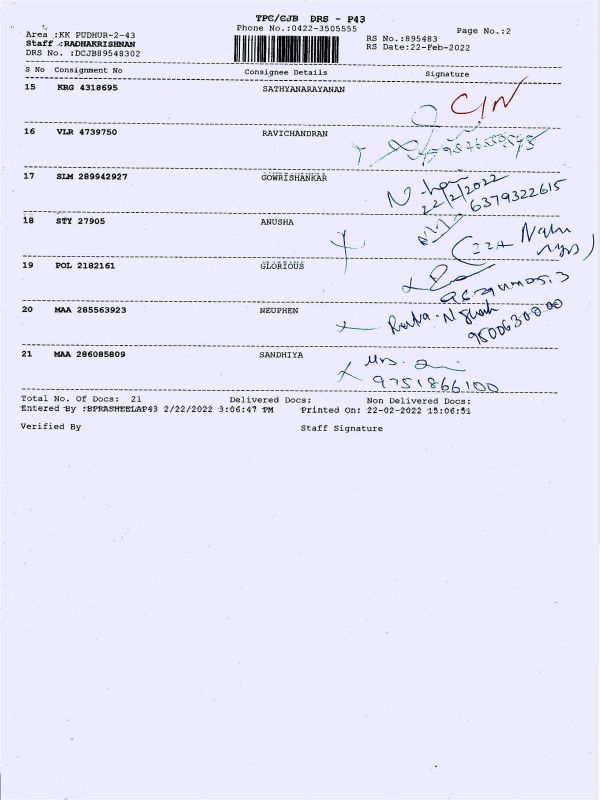 TPC/CJB DRS - P43
Phone No.:0422-3505555
Page No.:2
Area :KK PUDHUR-2-43
RS No.:895483
Staff :RADHAKRISHNAN
RS Date:22-Feb-2022
DRS No. :DCJB89548302
S No Consignment No Consignee Details Signature
15 KRG 4318695 SATHYANARAYANAN
16 VLR 4739750 RAVICHANDRAN
17 SLM 289942927 GOWRISHANKAR
22/2/2022
6379322615
18 STY 27905 ANUSHA
19 POL 2182161 GLORIOUS
20 MAA 285563923 NZUPHEN
9500630000
21 MAA 286085809 SANDHIYA
Mrs.
9751866100
Total No. Of Docs: 21 Delivered Docs: Non Delivered Docs:
Entered By :BPRASHEELAP43 2/22/2022 3:06:47 PM Printed On: 22-02-2022 15:06:51
Verified By Staff Signature